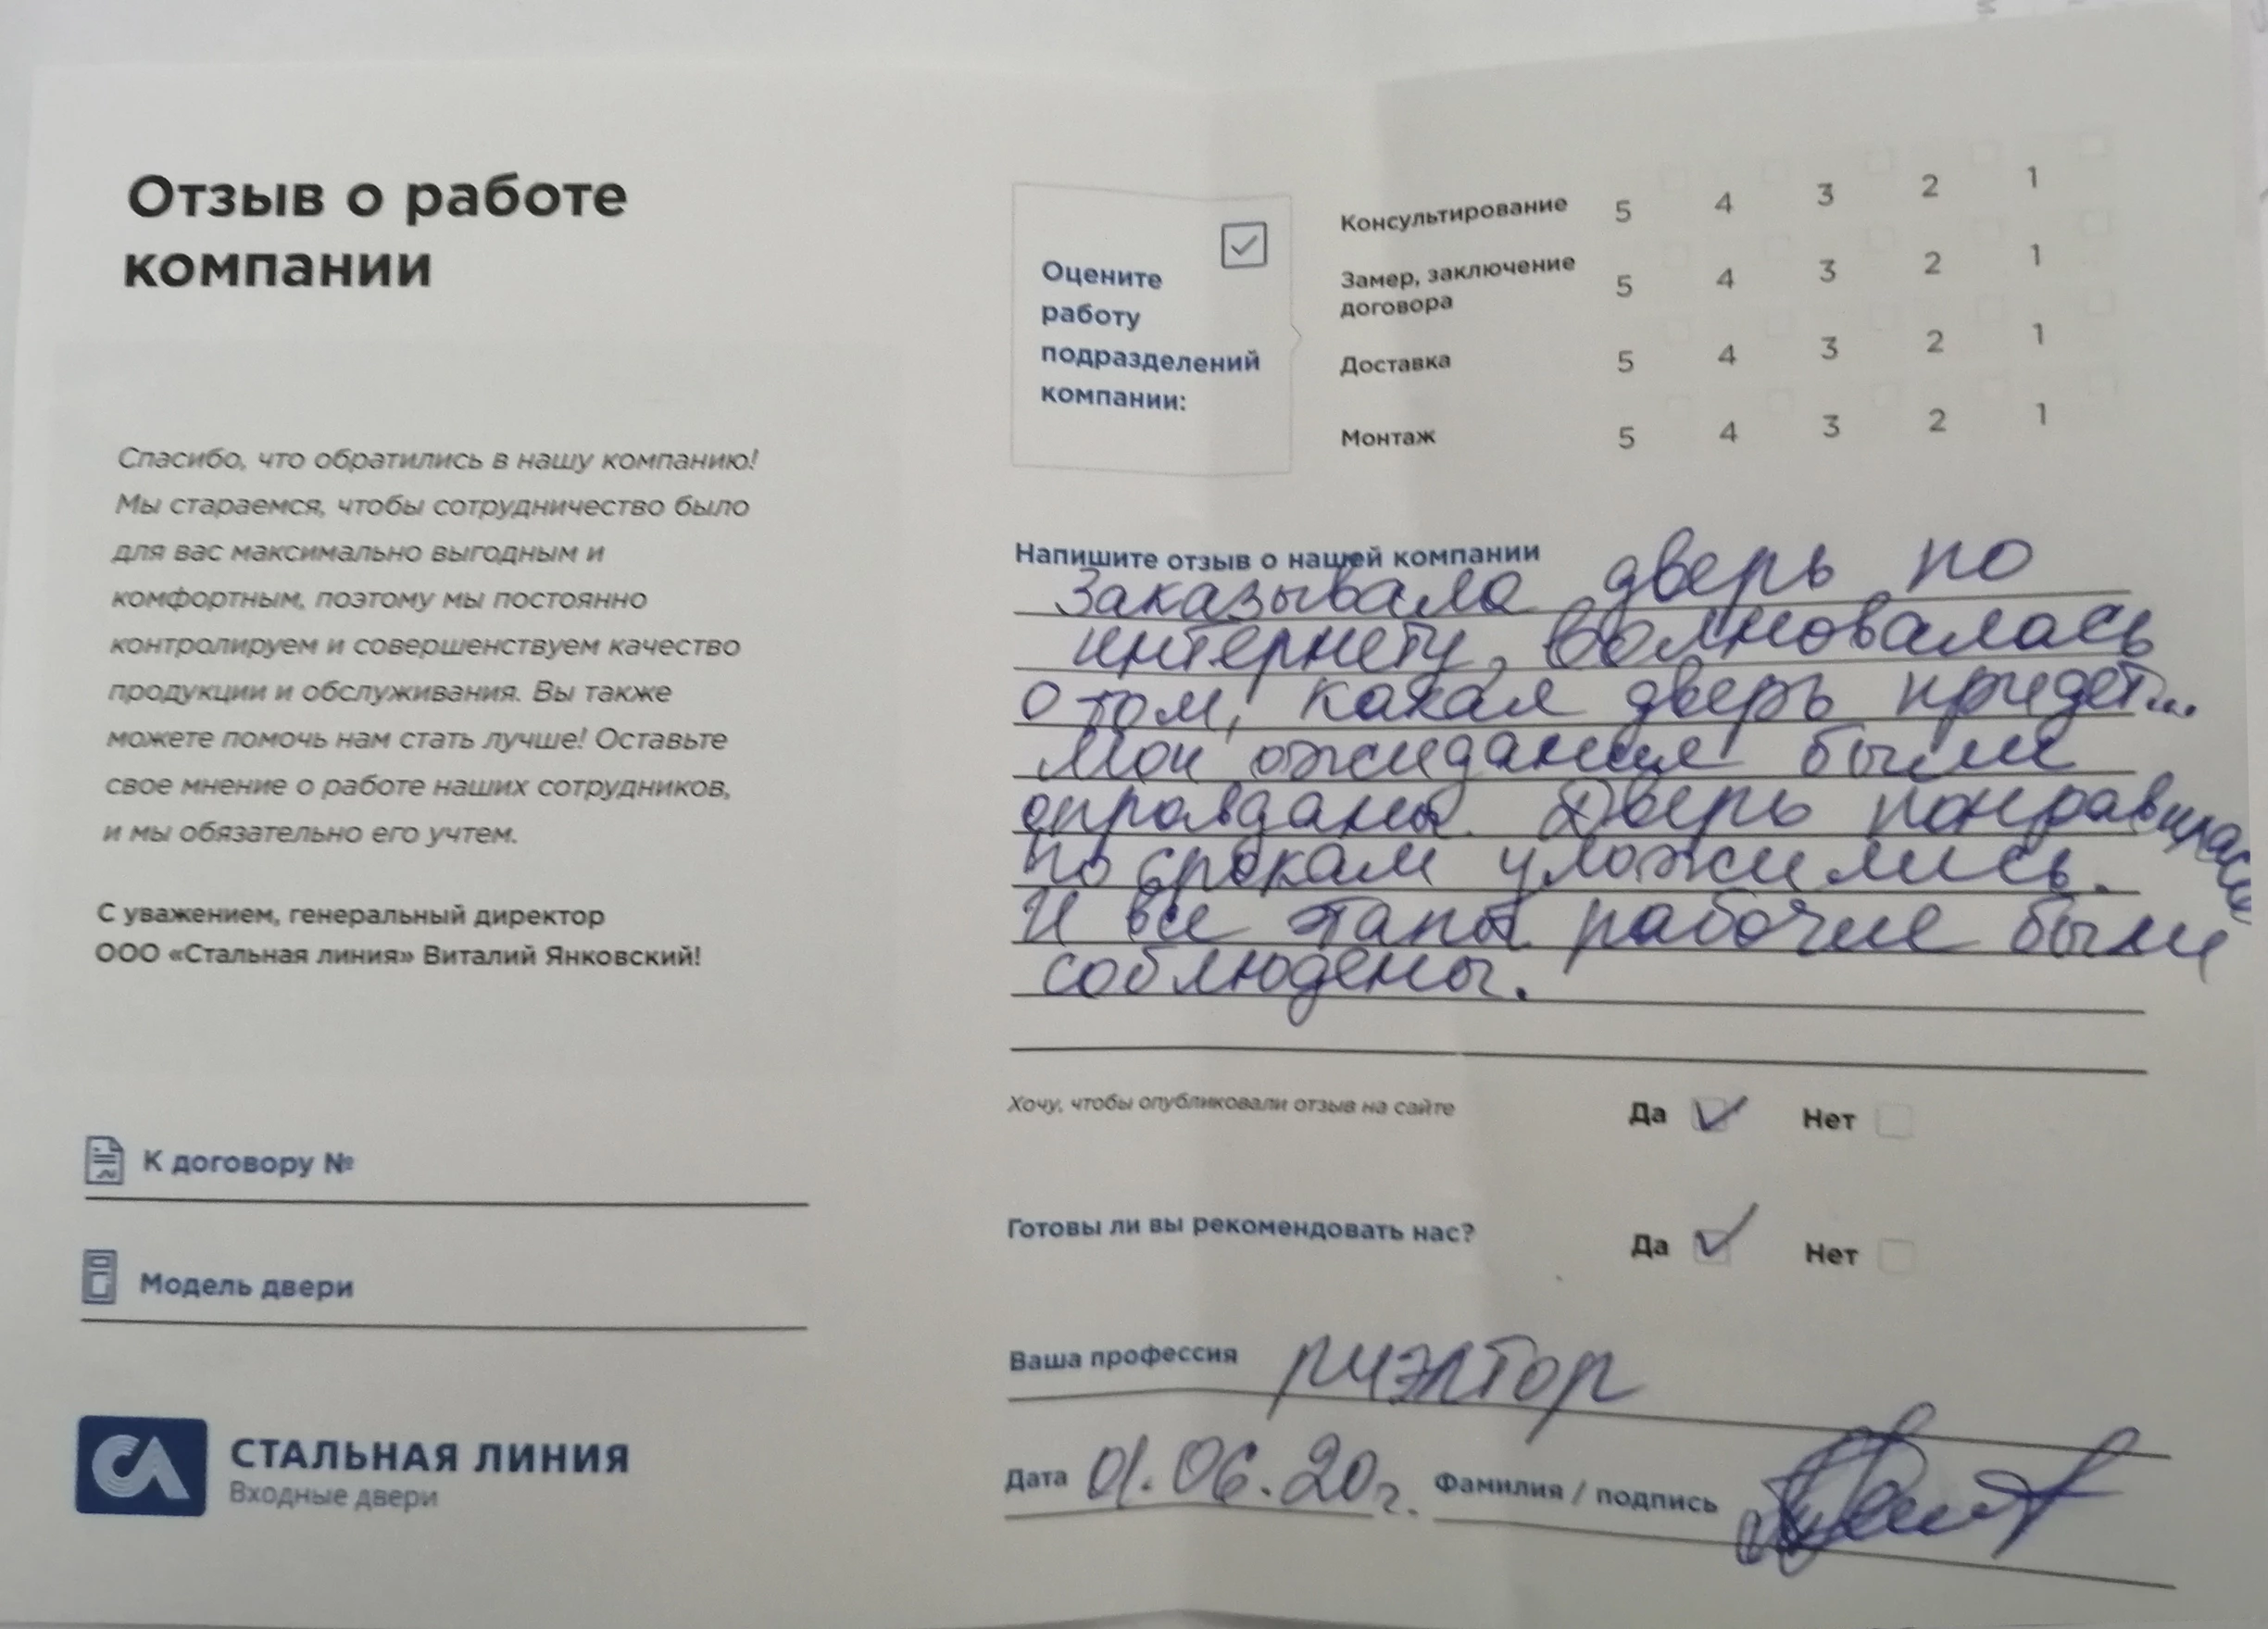 Отзыв о работе
компании
Спасибо, что обратились в нашу компанию!
Мы стараемся, чтобы сотрудничество было
для вас максимально выгодным и
комфортным, поэтому мы постоянно
контролируем и совершенствуем качество
продукции и обслуживания. Вы также
можете помочь нам стать лучше! Оставьте
свое мнение о работе наших сотрудников,
и мы обязательно его учтем.
С уважением, генеральный директор
ООО «Стальная линия» Виталий Янковский!
К договору №
Модель двери
СТАЛЬНАЯ ЛИНИЯ
Входные двери
Оцените
работу
подразделений
компании:
Консультирование 5 4 3 2 1
Замер, заключение
договора 5 4 3 2 1
Доставка 5 4 3 2 1
Монтаж 5 4 3 2 1
Напишите отзыв о нашей компании
Заказывала дверь по
интернету, волновалась
о том, какая дверь придет...
Мои ожидания были
оправданы. Дверь понравилась
по срокам уложились.
И все этапы рабочие были
соблюдены.
Хочу, чтобы опубликовали отзыв на сайте Да Нет
Готовы ли вы рекомендовать нас? Да Нет
Ваша профессия риэлтор
Дата 01.06.20г. Фамилия / подпись